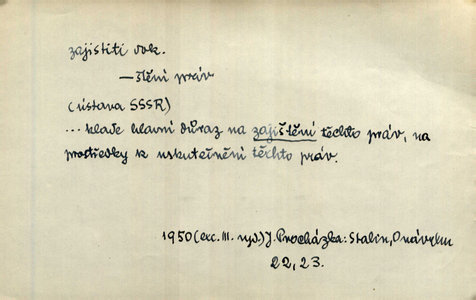 zajistiti dok.
—štění práv
(ústava SSSR)
... klade hlavní důraz na zajištění těchto práv, na
prostředky k uskutečnění těchto práv.
1950 (exc. III. vyd.) J. Procházka: Stalin, O návrhu
22, 23.